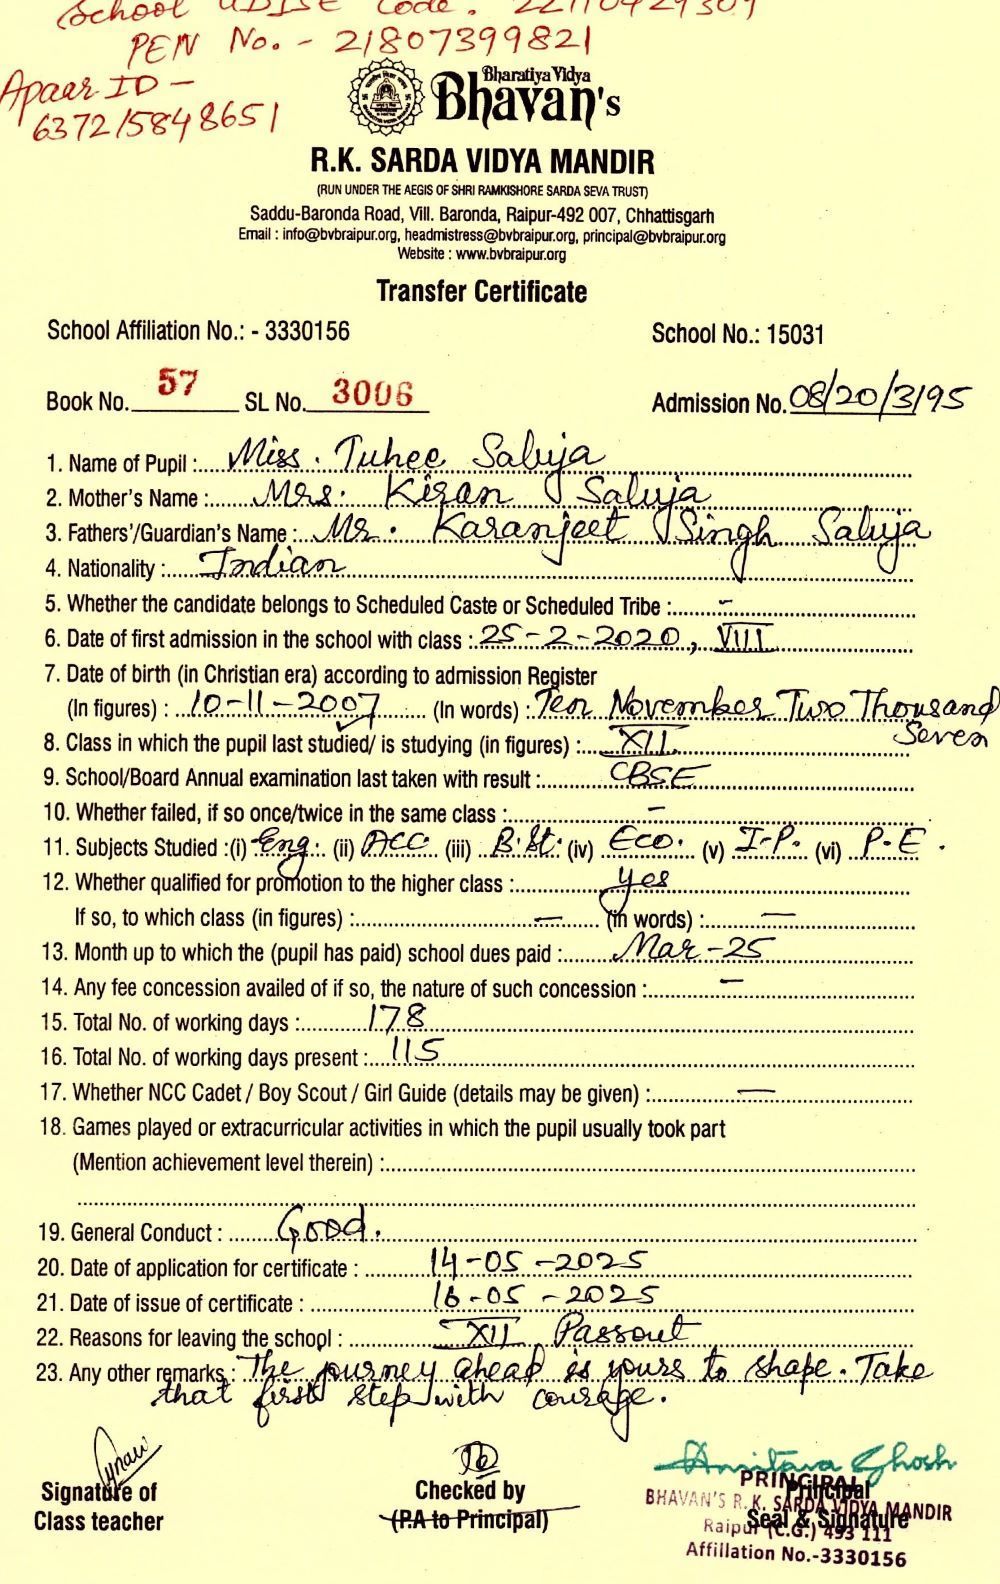 School UDISE Code. 22110429309
PEN No. - 21807399821
Apaar ID -
637215848651
Bharatiya Vidya
Bhavan's
R.K. SARDA VIDYA MANDIR
(RUN UNDER THE AEGIS OF SHRI RAMKISHORE SARDA SEVA TRUST)
Saddu-Baronda Road, Vill. Baronda, Raipur-492 007, Chhattisgarh
Email : info@bvbraipur.org, headmistress@bvbraipur.org, principal@bvbraipur.org
Website : www.bvbraipur.org
Transfer Certificate
School Affiliation No.: - 3330156 School No.: 15031
Book No. 57 SL No. 3006 Admission No. 08/20/3195
1. Name of Pupil : Miss. Tuhee Saluja
2. Mother's Name : Mrs. Kiran Saluja
3. Fathers'/Guardian's Name : Mr. Karanjeet Singh Saluja
4. Nationality : Indian
5. Whether the candidate belongs to Scheduled Caste or Scheduled Tribe : -
6. Date of first admission in the school with class : 25-2-2020, VIII
7. Date of birth (in Christian era) according to admission Register
(In figures) : 10-11-2007 (In words) : Ten November Two Thousand
Seven
8. Class in which the pupil last studied/ is studying (in figures) : XII
9. School/Board Annual examination last taken with result : CBSE
10. Whether failed, if so once/twice in the same class : -
11. Subjects Studied :(i) Eng. (ii) ACC. (iii) B.St. (iv) Eco. (v) I-P. (vi) P-E.
12. Whether qualified for promotion to the higher class : yes
If so, to which class (in figures) : - (in words) : -
13. Month up to which the (pupil has paid) school dues paid : Mar-25
14. Any fee concession availed of if so, the nature of such concession : -
15. Total No. of working days : 178
16. Total No. of working days present : 115
17. Whether NCC Cadet / Boy Scout / Girl Guide (details may be given) : -
18. Games played or extracurricular activities in which the pupil usually took part
(Mention achievement level therein) :
19. General Conduct : Good.
20. Date of application for certificate : 14-05-2025
21. Date of issue of certificate : 16-05-2025
22. Reasons for leaving the school : XII Passout
23. Any other remarks : The journey ahead is yours to shape. Take
that first step with courage.
Signature of
Class teacher
Checked by
(P.A to Principal)
Amitava Ghosh
PRINCIPAL
Principal
BHAVAN'S R. K. SARDA VIDYA MANDIR
Seal & Signature
Raipur (C.G.) 493 111
Affiliation No.-3330156